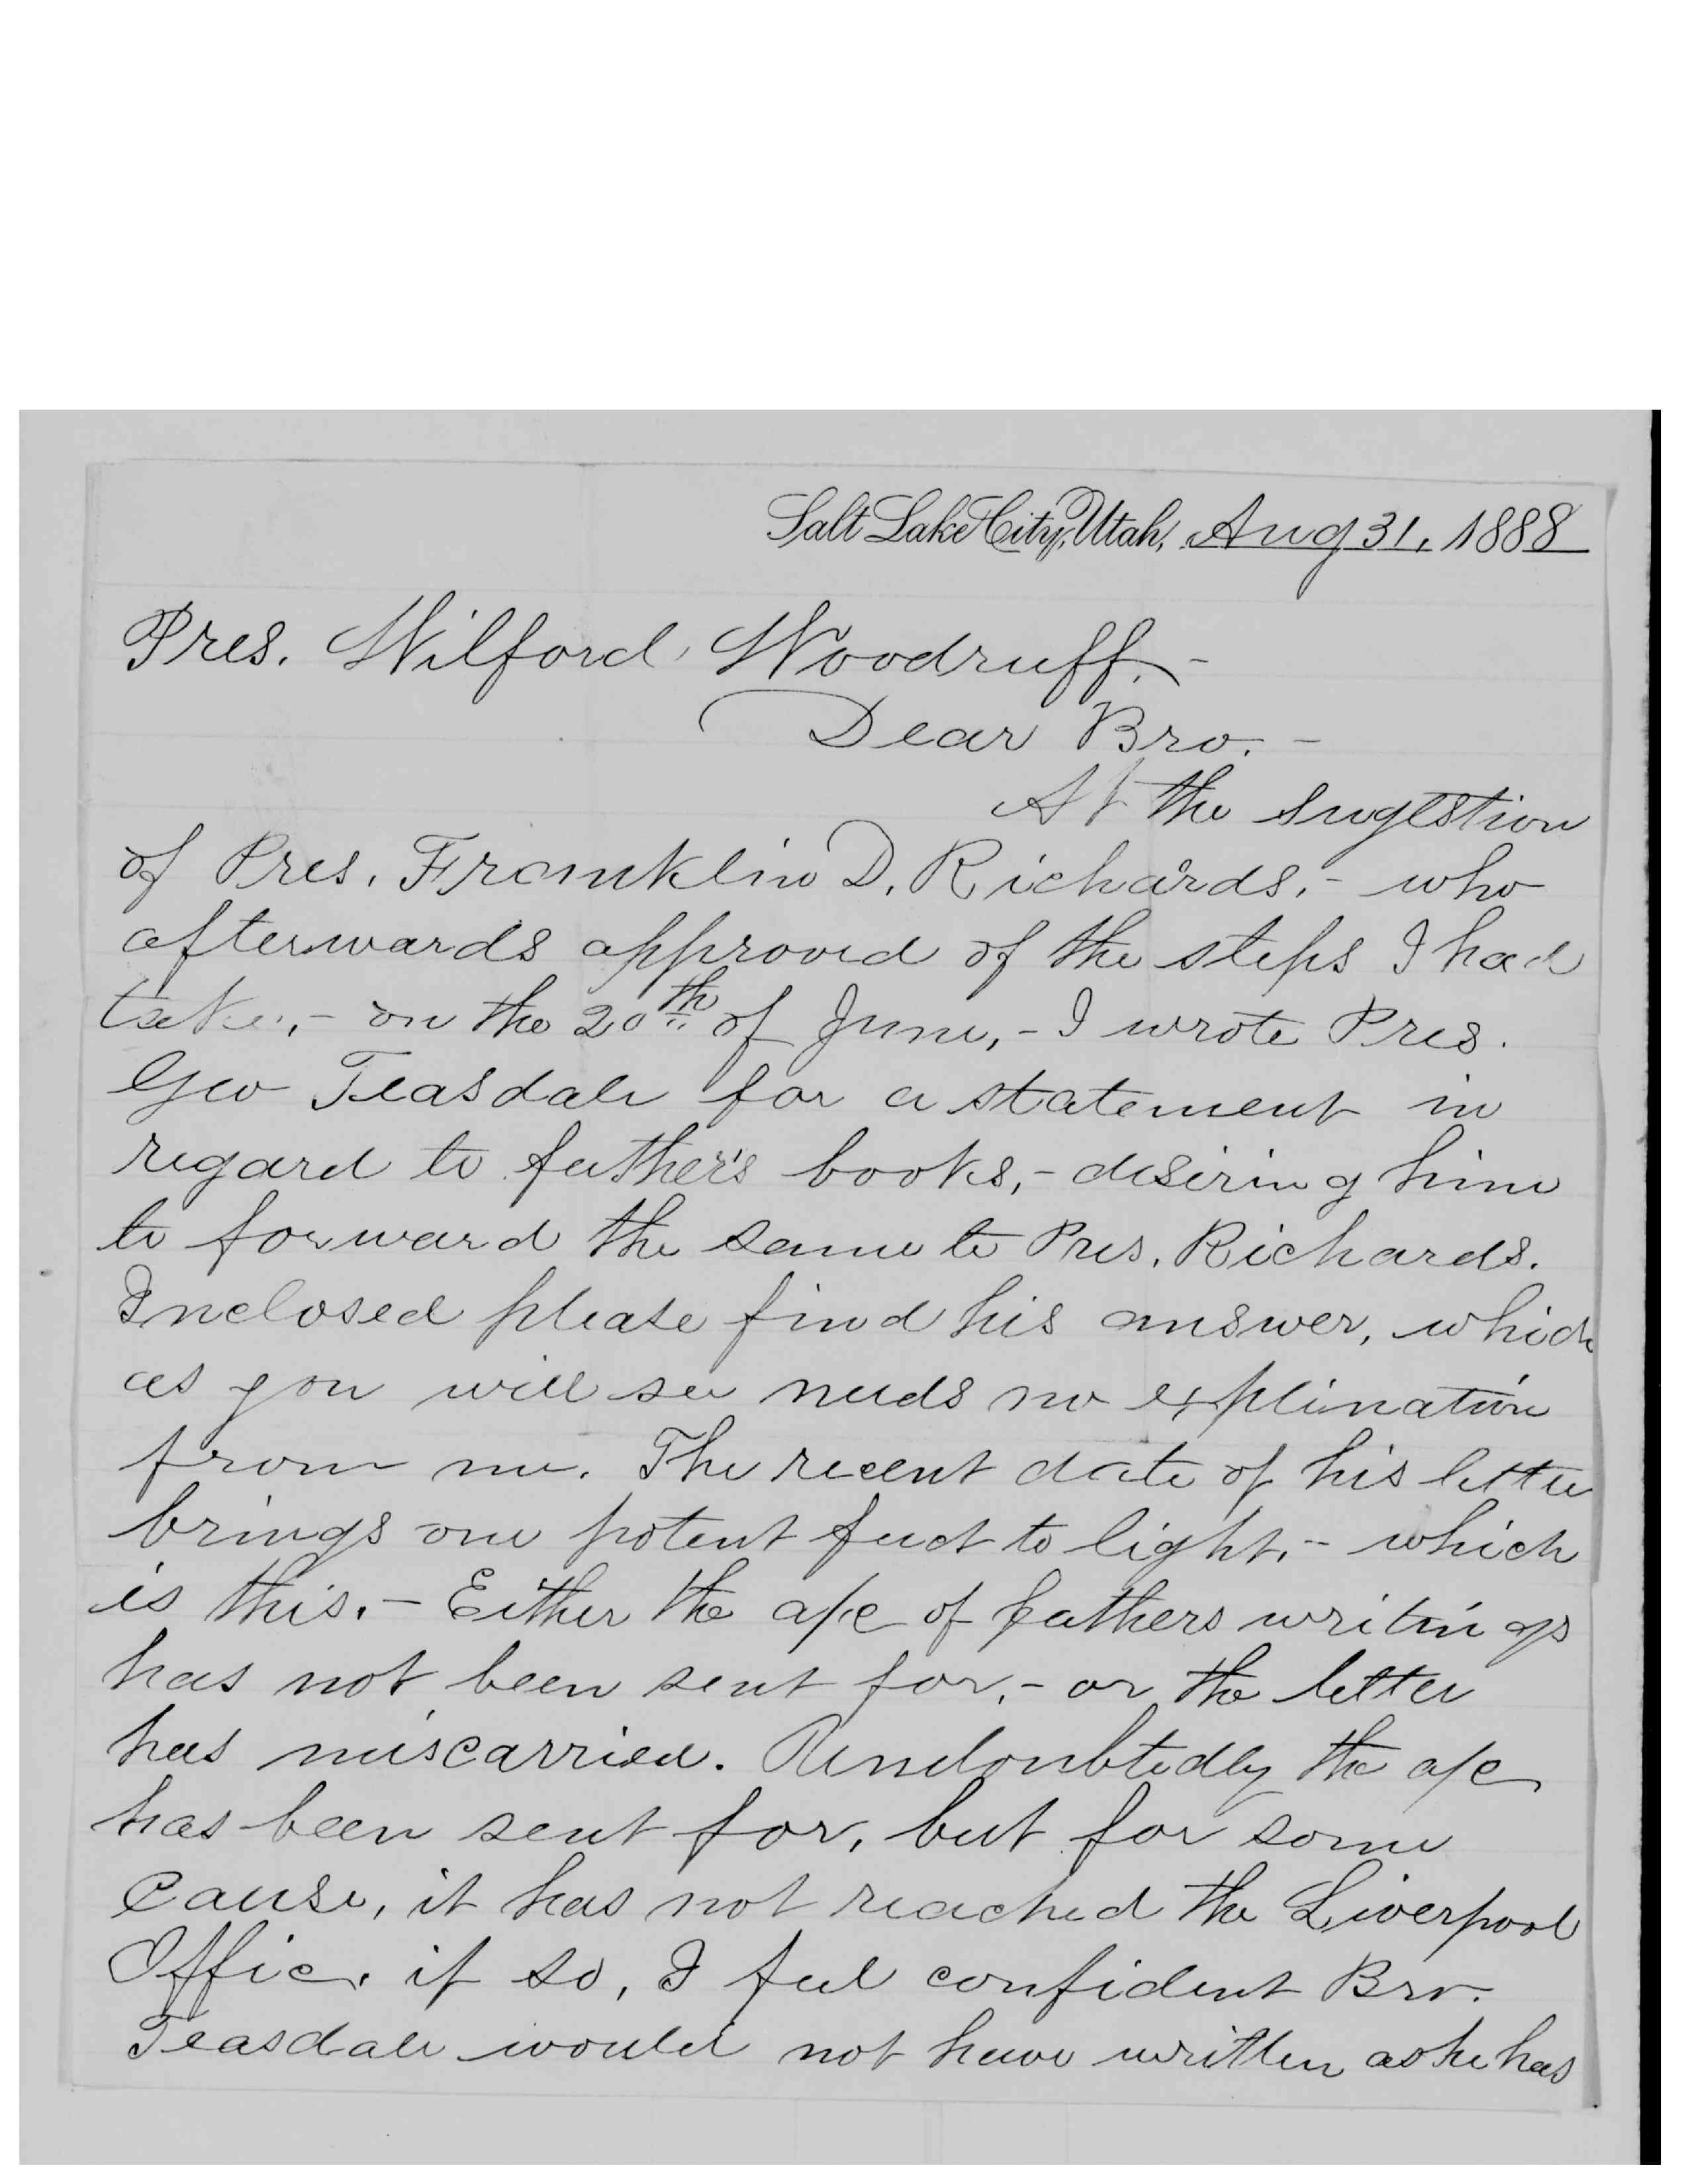 Salt Lake City, Utah, Aug 31, 1888
Pres. Wilford Woodruff.-
Dear Bro. -
At the sugestion
of Pres. Franklin D. Richards,- who
afterwards approved of the steps I had
taken,- on the 20th of June,- I wrote Pres.
Geo Teasdale for a statement in
regard to father's books,- desiring him
to forward the same to Pres. Richards.
Inclosed please find his answer, which
as you will see needs no explination
from me. The recent date of his letter
brings one potent fact to light,- which
is this.- Either the a/c of fathers writings
has not been sent for,- or the letter
has miscarried. Undoubtedly the a/c
has been sent for, but for some
cause, it has not reached the Liverpool
Office. if so, I feel confident Bro.
Teasdale would not have written as he has